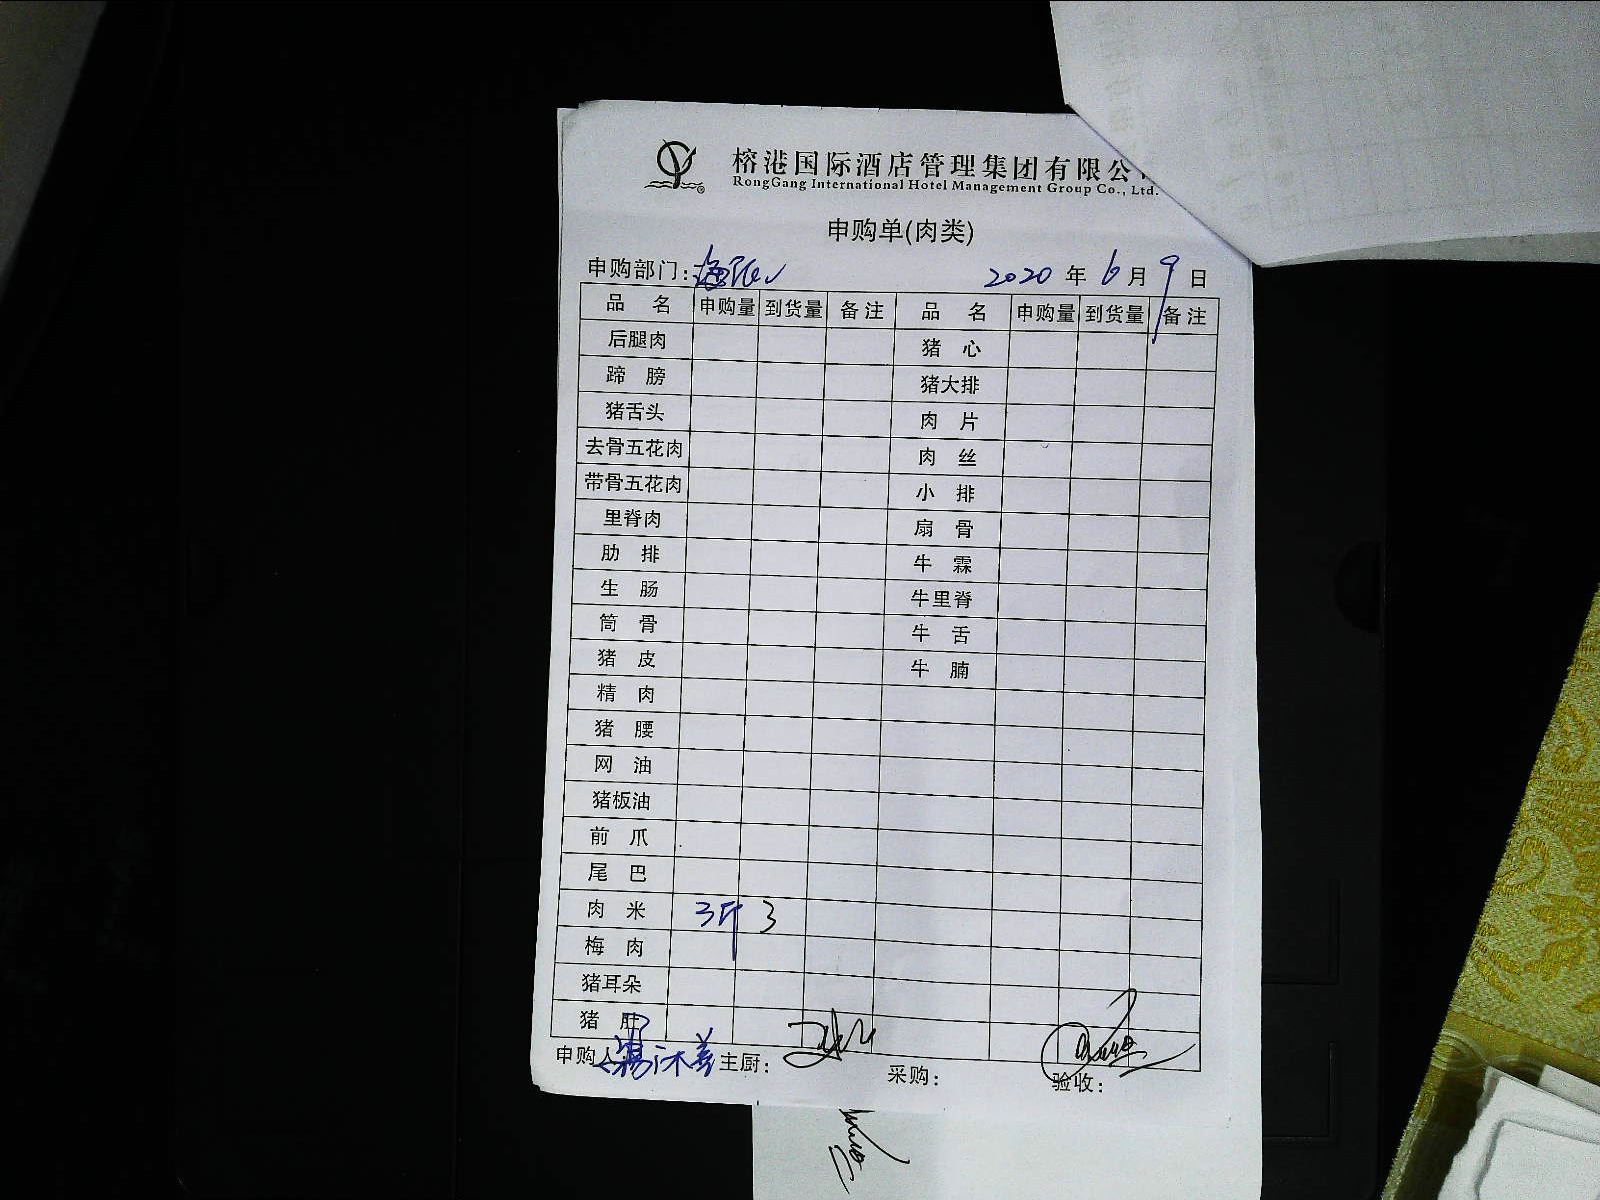 榕港国际酒店管理集团有限公
RongGang International Hotel Management Group Co., Ltd.
申购单(肉类)
申购部门: 2020 年 6 月 9 日
品 名 申购量 到货量 备注 品 名 申购量 到货量 备注
后腿肉 猪 心
蹄 膀 猪大排
猪舌头 肉 片
去骨五花肉 肉 丝
带骨五花肉 小 排
里脊肉 扇 骨
肋 排 牛 霖
生 肠 牛里脊
筒 骨 牛 舌
猪 皮 牛 腩
精 肉
猪 腰
网 油
猪板油
前 爪
尾 巴
肉 米 3斤 3
梅 肉
猪耳朵
猪 肝
申购人 主厨: 采购: 验收: